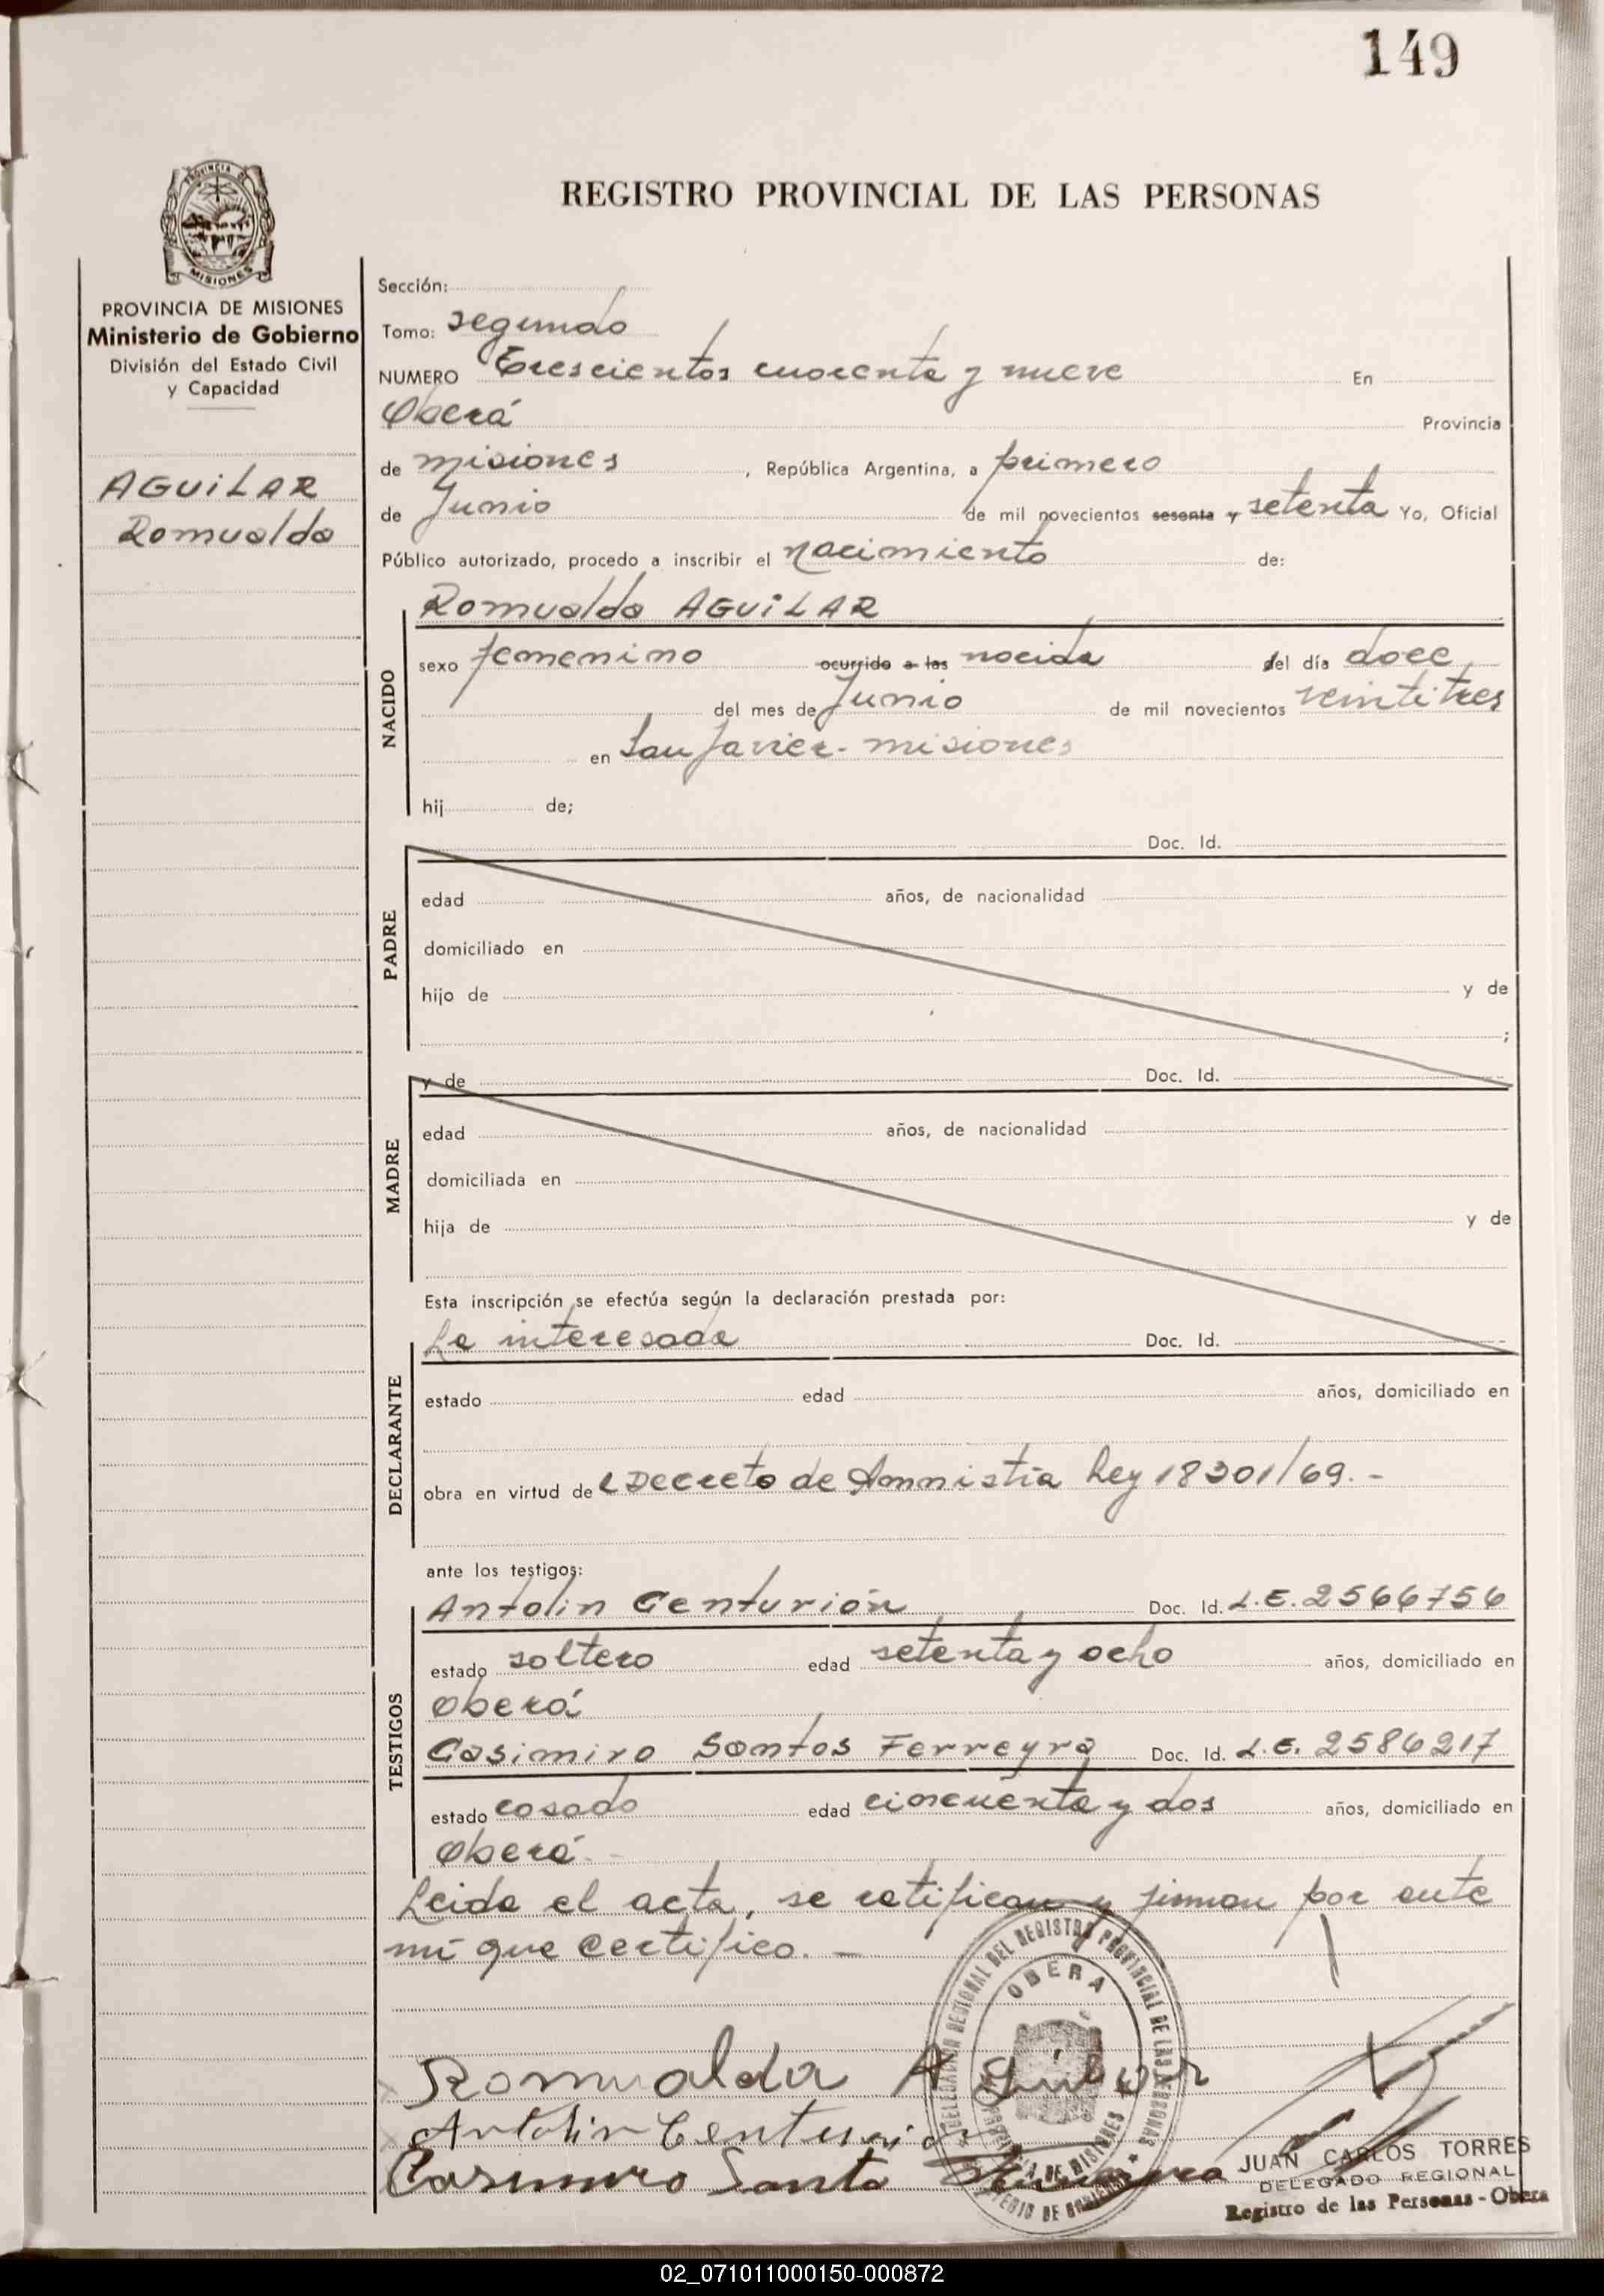 149
PROVINCIA DE
MISIONES
REGISTRO PROVINCIAL DE LAS PERSONAS
PROVINCIA DE MISIONES
Ministerio de Gobierno
División del Estado Civil
y Capacidad
AGUILAR
Romualda
Sección:
Tomo: segundo
NUMERO Trescientos cuarenta y nueve En
Oberá Provincia
de misiones, República Argentina, a primero
de Junio de mil novecientos sesenta y setenta Yo, Oficial
Público autorizado, procedo a inscribir el nacimiento de:
Romualda AGUILAR
NACIDO
sexo femenino ocurrido a las nacida del día doce
del mes de Junio de mil novecientos veintitres
en San Javier - misiones
hij de;
Doc. Id.
PADRE
edad años, de nacionalidad
domiciliado en
hijo de y de
;
y de Doc. Id.
MADRE
edad años, de nacionalidad
domiciliada en
hija de y de
Esta inscripción se efectúa según la declaración prestada por:
La interesada Doc. Id.
DECLARANTE
estado edad años, domiciliado en
obra en virtud de Decreto de Amnistía Ley 18301/69.-
ante los testigos:
Antolin Centurión Doc. Id. L.E. 2566756
TESTIGOS
estado soltero edad setenta y ocho años, domiciliado en
Oberá
Casimiro Santos Ferreyra Doc. Id. L.E. 2586217
estado casado edad cincuenta y dos años, domiciliado en
Oberá.-
Leida el acta, se ratifican y firman por ante
mí que certifico.-
DELEGACION REGIONAL DEL REGISTRO PROVINCIAL DE LAS PERSONAS
OBERA
PROVINCIA DE MISIONES
MINISTERIO DE GOBIERNO
Romualda Aguilar
Antolin Centurion
Casimiro Santo Ferreyra
JUAN CARLOS TORRES
DELEGADO REGIONAL
Registro de las Personas - Obera
02_071011000150-000872